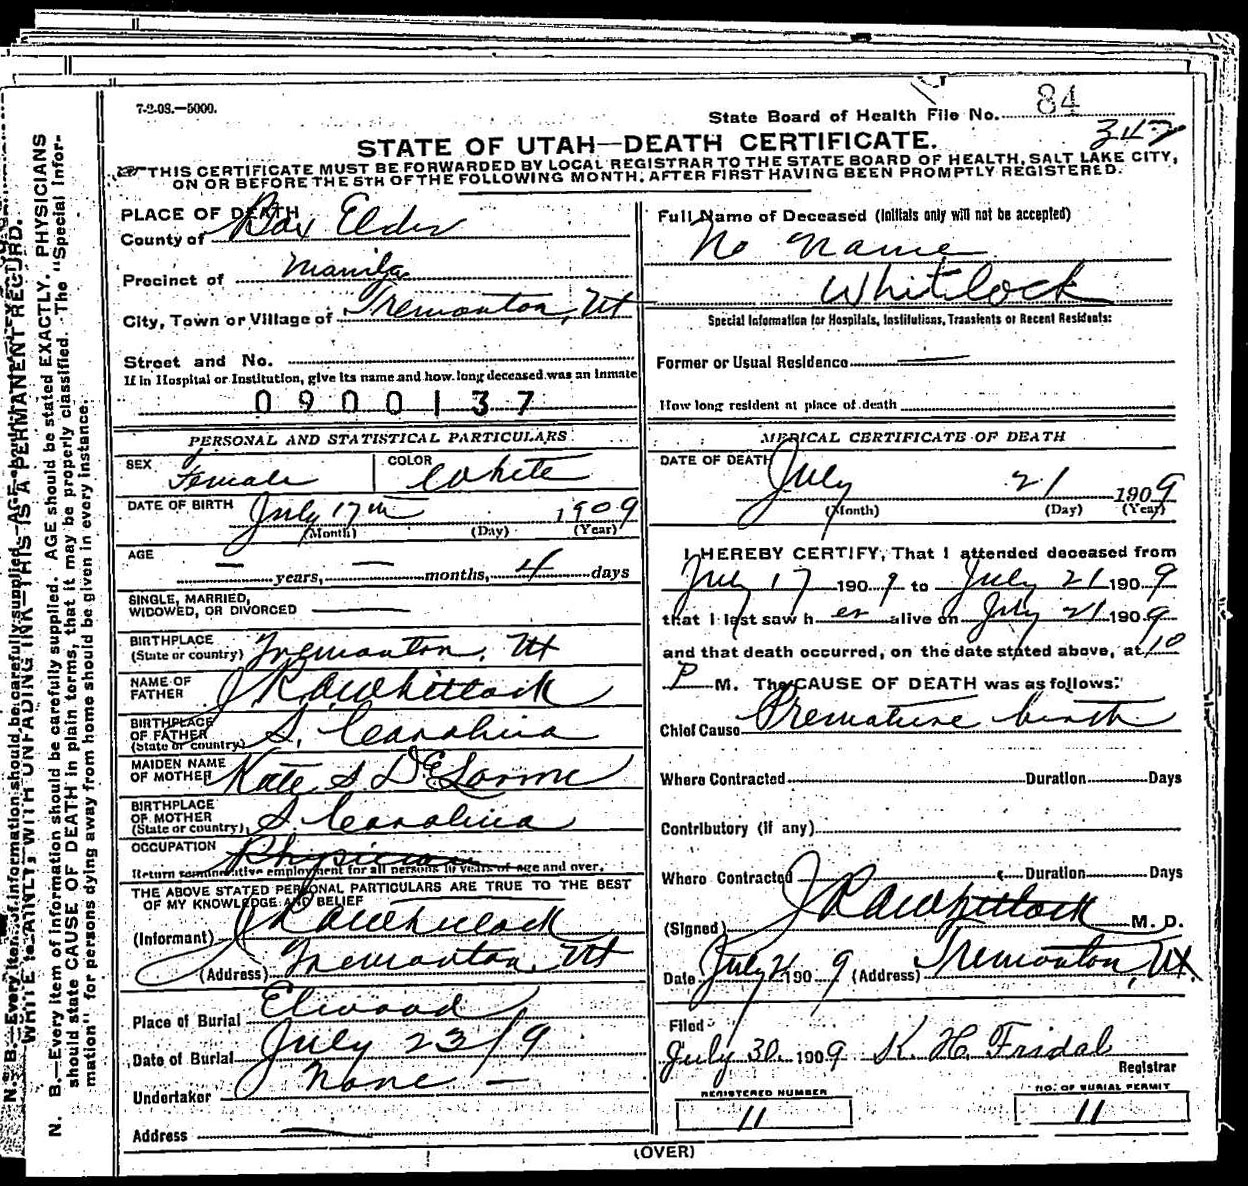 7-2-08.—5000.
State Board of Health File No. 84
347
STATE OF UTAH—DEATH CERTIFICATE.
THIS CERTIFICATE MUST BE FORWARDED BY LOCAL REGISTRAR TO THE STATE BOARD OF HEALTH, SALT LAKE CITY,
ON OR BEFORE THE 5TH OF THE FOLLOWING MONTH, AFTER FIRST HAVING BEEN PROMPTLY REGISTERED.
PLACE OF DEATH
County of Box Elder
Precinct of Manila
City, Town or Village of Tremonton, Ut
Street and No.
If in Hospital or Institution, give its name and how long deceased was an Inmate
0900137
PERSONAL AND STATISTICAL PARTICULARS
SEX Female COLOR White
DATE OF BIRTH July 17th 1909
(Month) (Day) (Year)
AGE
— years, — months, 4 days
SINGLE, MARRIED,
WIDOWED, OR DIVORCED
BIRTHPLACE
(State or country) Tremonton, Ut
NAME OF
FATHER J R A Whitlock
BIRTHPLACE
OF FATHER
(State or country) S. Carolina
MAIDEN NAME
OF MOTHER Kate S DeLorme
BIRTHPLACE
OF MOTHER
(State or country) S. Carolina
OCCUPATION Physician
Return remunerative employment for all persons 10 years of age and over.
THE ABOVE STATED PERSONAL PARTICULARS ARE TRUE TO THE BEST
OF MY KNOWLEDGE AND BELIEF
(Informant) J R A Whitlock
(Address) Tremonton, Ut
Place of Burial Elwood
Date of Burial July 23/9
Undertaker None —
Address
Full Name of Deceased (Initials only will not be accepted)
No Name
Whitlock
Special Information for Hospitals, Institutions, Transients or Recent Residents:
Former or Usual Residence
How long resident at place of death
MEDICAL CERTIFICATE OF DEATH
DATE OF DEATH
July 21 1909
(Month) (Day) (Year)
I HEREBY CERTIFY, That I attended deceased from
July 17 1909 to July 21 1909
that I last saw her alive on July 21 1909
and that death occurred, on the date stated above, at 10
P M. The CAUSE OF DEATH was as follows:
Chief Cause Premature birth
Where Contracted Duration Days
Contributory (if any)
Where Contracted Duration Days
(Signed) J R A Whitlock M. D.
Date July 21 1909 (Address) Tremonton, Ut.
Filed
July 30. 1909 K. H. Fridal
Registrar
REGISTERED NUMBER
11
NO. OF BURIAL PERMIT
11
(OVER)
WRITE PLAINLY, WITH UNFADING INK—THIS IS A PERMANENT RECORD.
N. B.—Every item of information should be carefully supplied. AGE should be stated EXACTLY. PHYSICIANS
should state CAUSE OF DEATH in plain terms, that it may be properly classified. The "Special Infor-
mation" for persons dying away from home should be given in every instance.